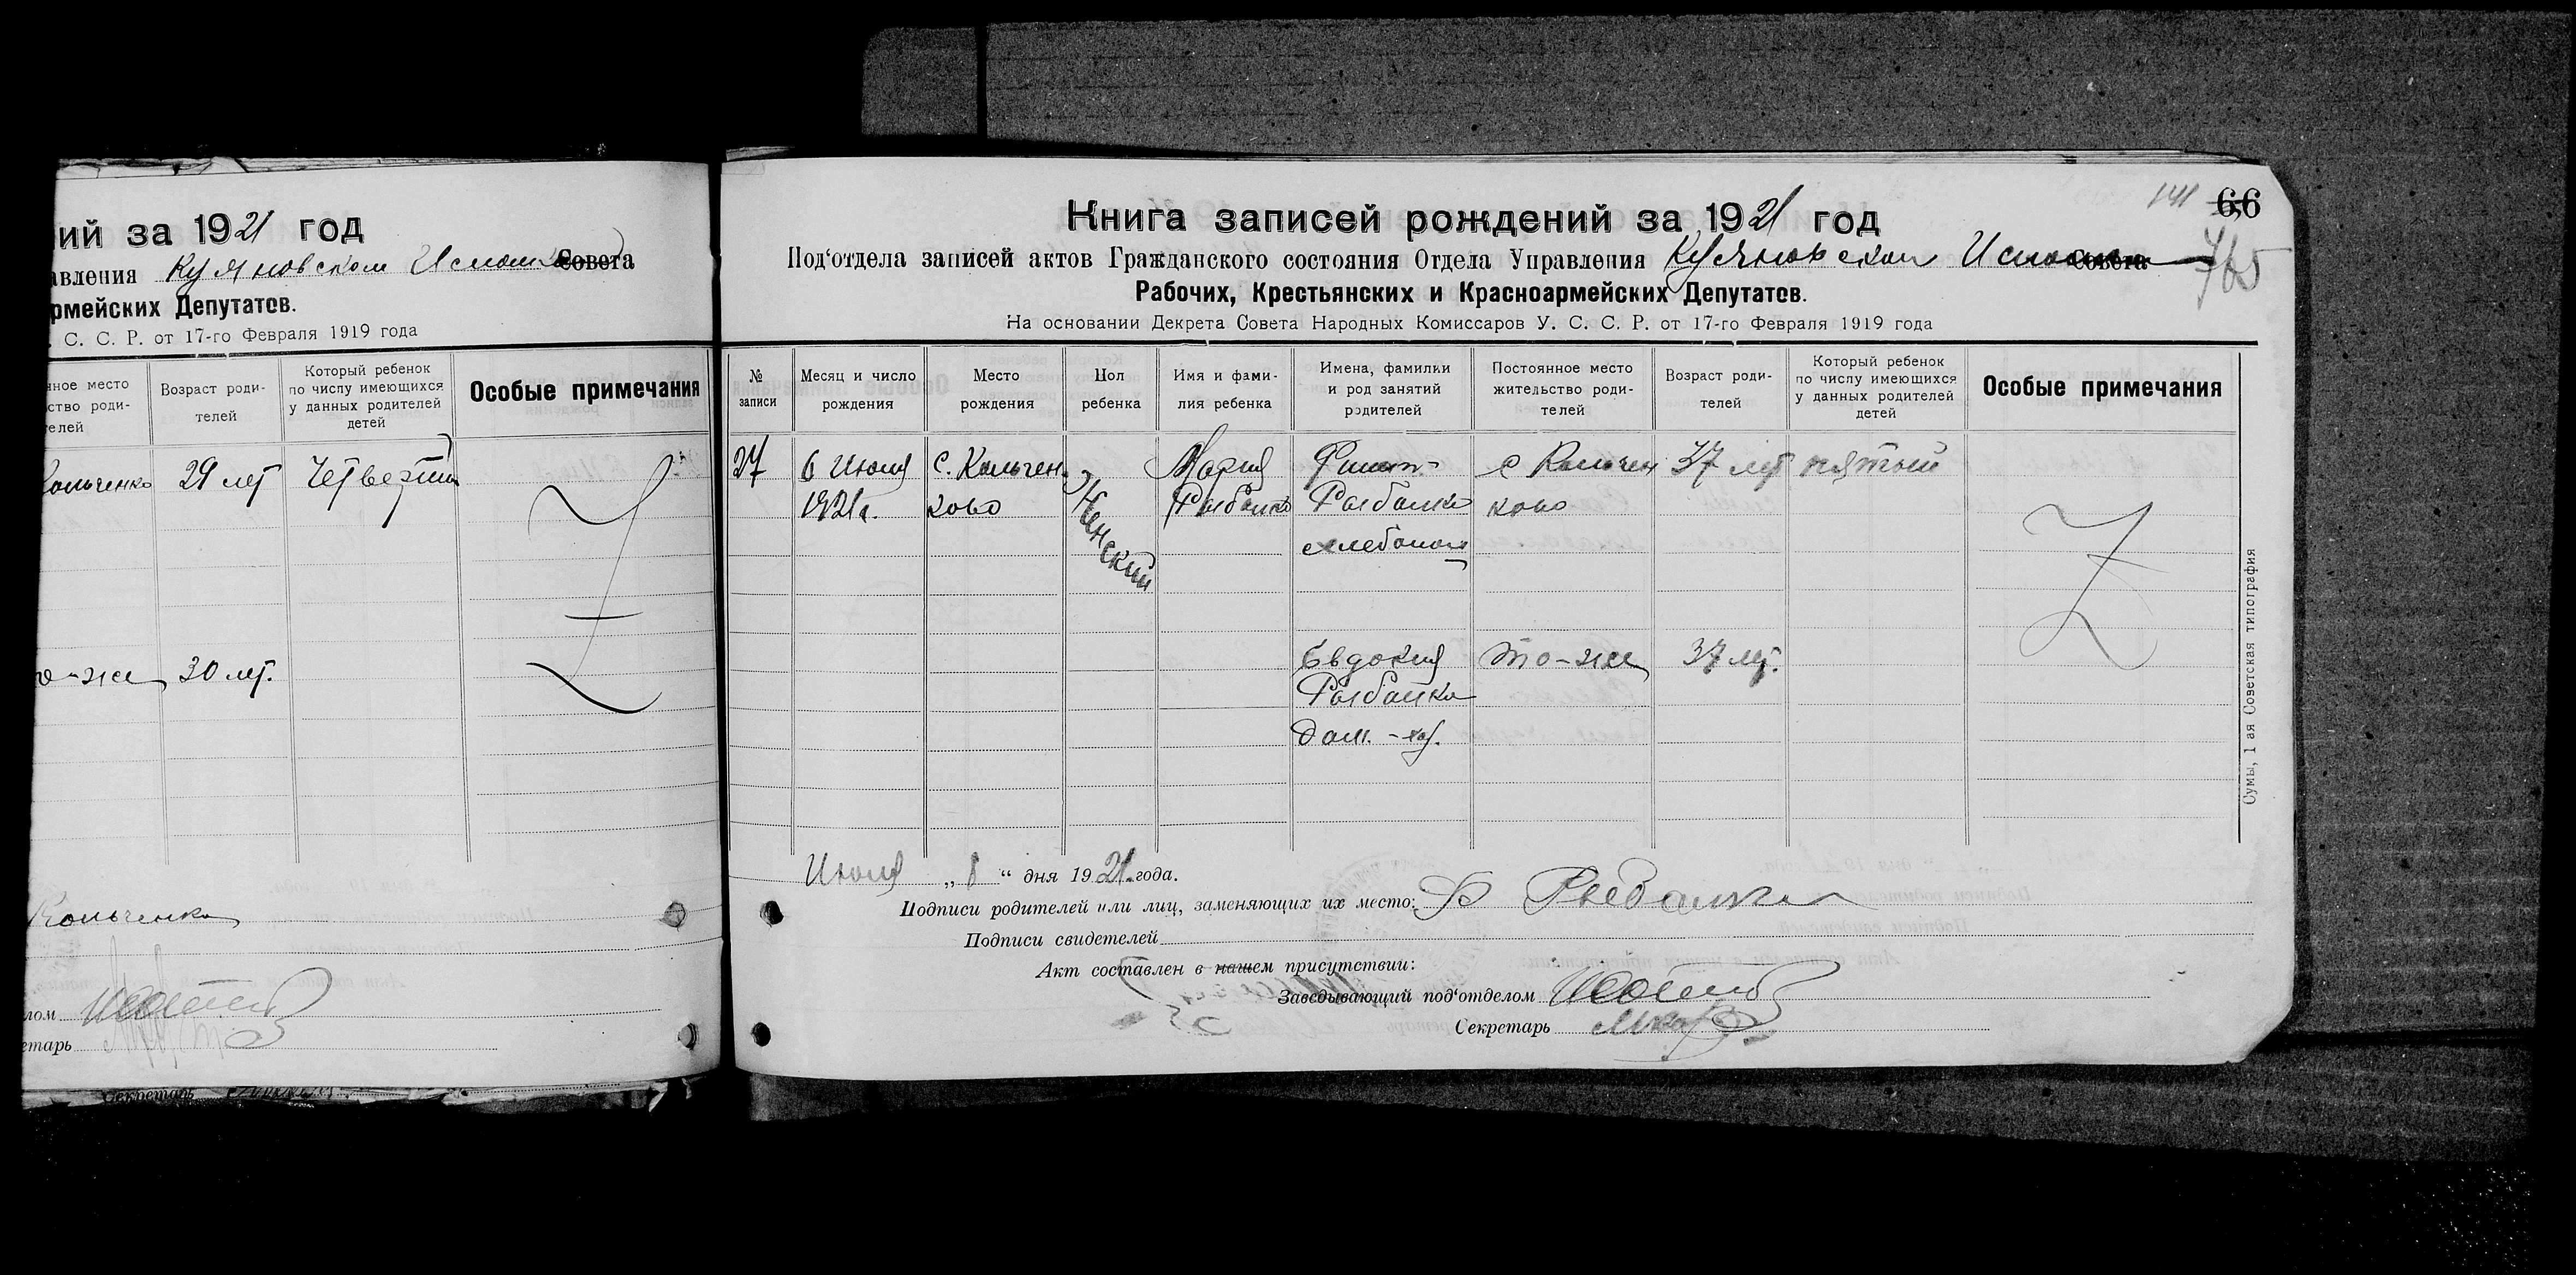 ий за 1921 год
авления Куяновском Исполк Совета
рмейских Депутатов.
. С. С. Р. от 17-го Февраля 1919 года
нное место
ство роди-
телей
Возраст роди-
телей
Который ребенок
по числу имеющихся
у данных родителей
детей
Особые примечания
Кольченко 29 лет Четвертый
о-же 30 лет.
Кольченко
лом
етарь
Секретарь
141 66
Книга записей рождений за 1921 год
Под'отдела записей актов Гражданского состояния Отдела Управления Куяновском Исполк Совета
765
Рабочих, Крестьянских и Красноармейских Депутатов.
На основании Декрета Совета Народных Комиссаров У. С. С. Р. от 17-го Февраля 1919 года
№
записи
Месяц и число
рождения
Место
рождения
Пол
ребенка
Имя и фами-
лия ребенка
Имена, фамилии
и род занятий
родителей
Постоянное место
жительство роди-
телей
Возраст роди-
телей
Который ребенок
по числу имеющихся
у данных родителей
детей
Особые примечания
27 6 Июля с. Кольчен Женский Мария Филип- с Кольчен 37 лет пятый
1921 г. ково Рыбалка Рыбалка ково
хлебопаш
Евдокия то-же 37 лет.
Рыбалка
дом. -хоз.
Июля „ 8 “ дня 1921 года.
Подписи родителей или лиц, заменяющих их место: Ф Рыбалка
Подписи свидетелей
Акт составлен в нашем присутствии:
Заведывающий под'отделом
Секретарь
Сумы, 1 ая Советская типография